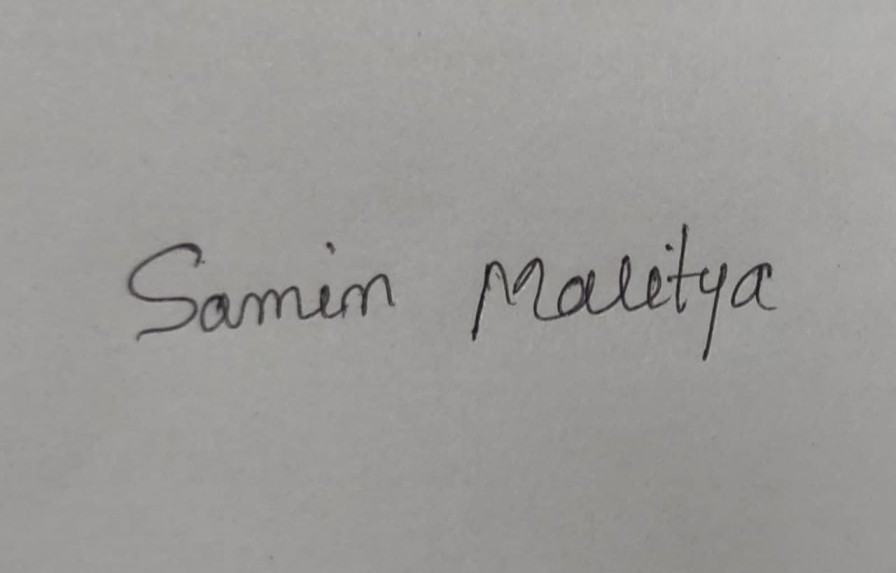 Samin Malitya